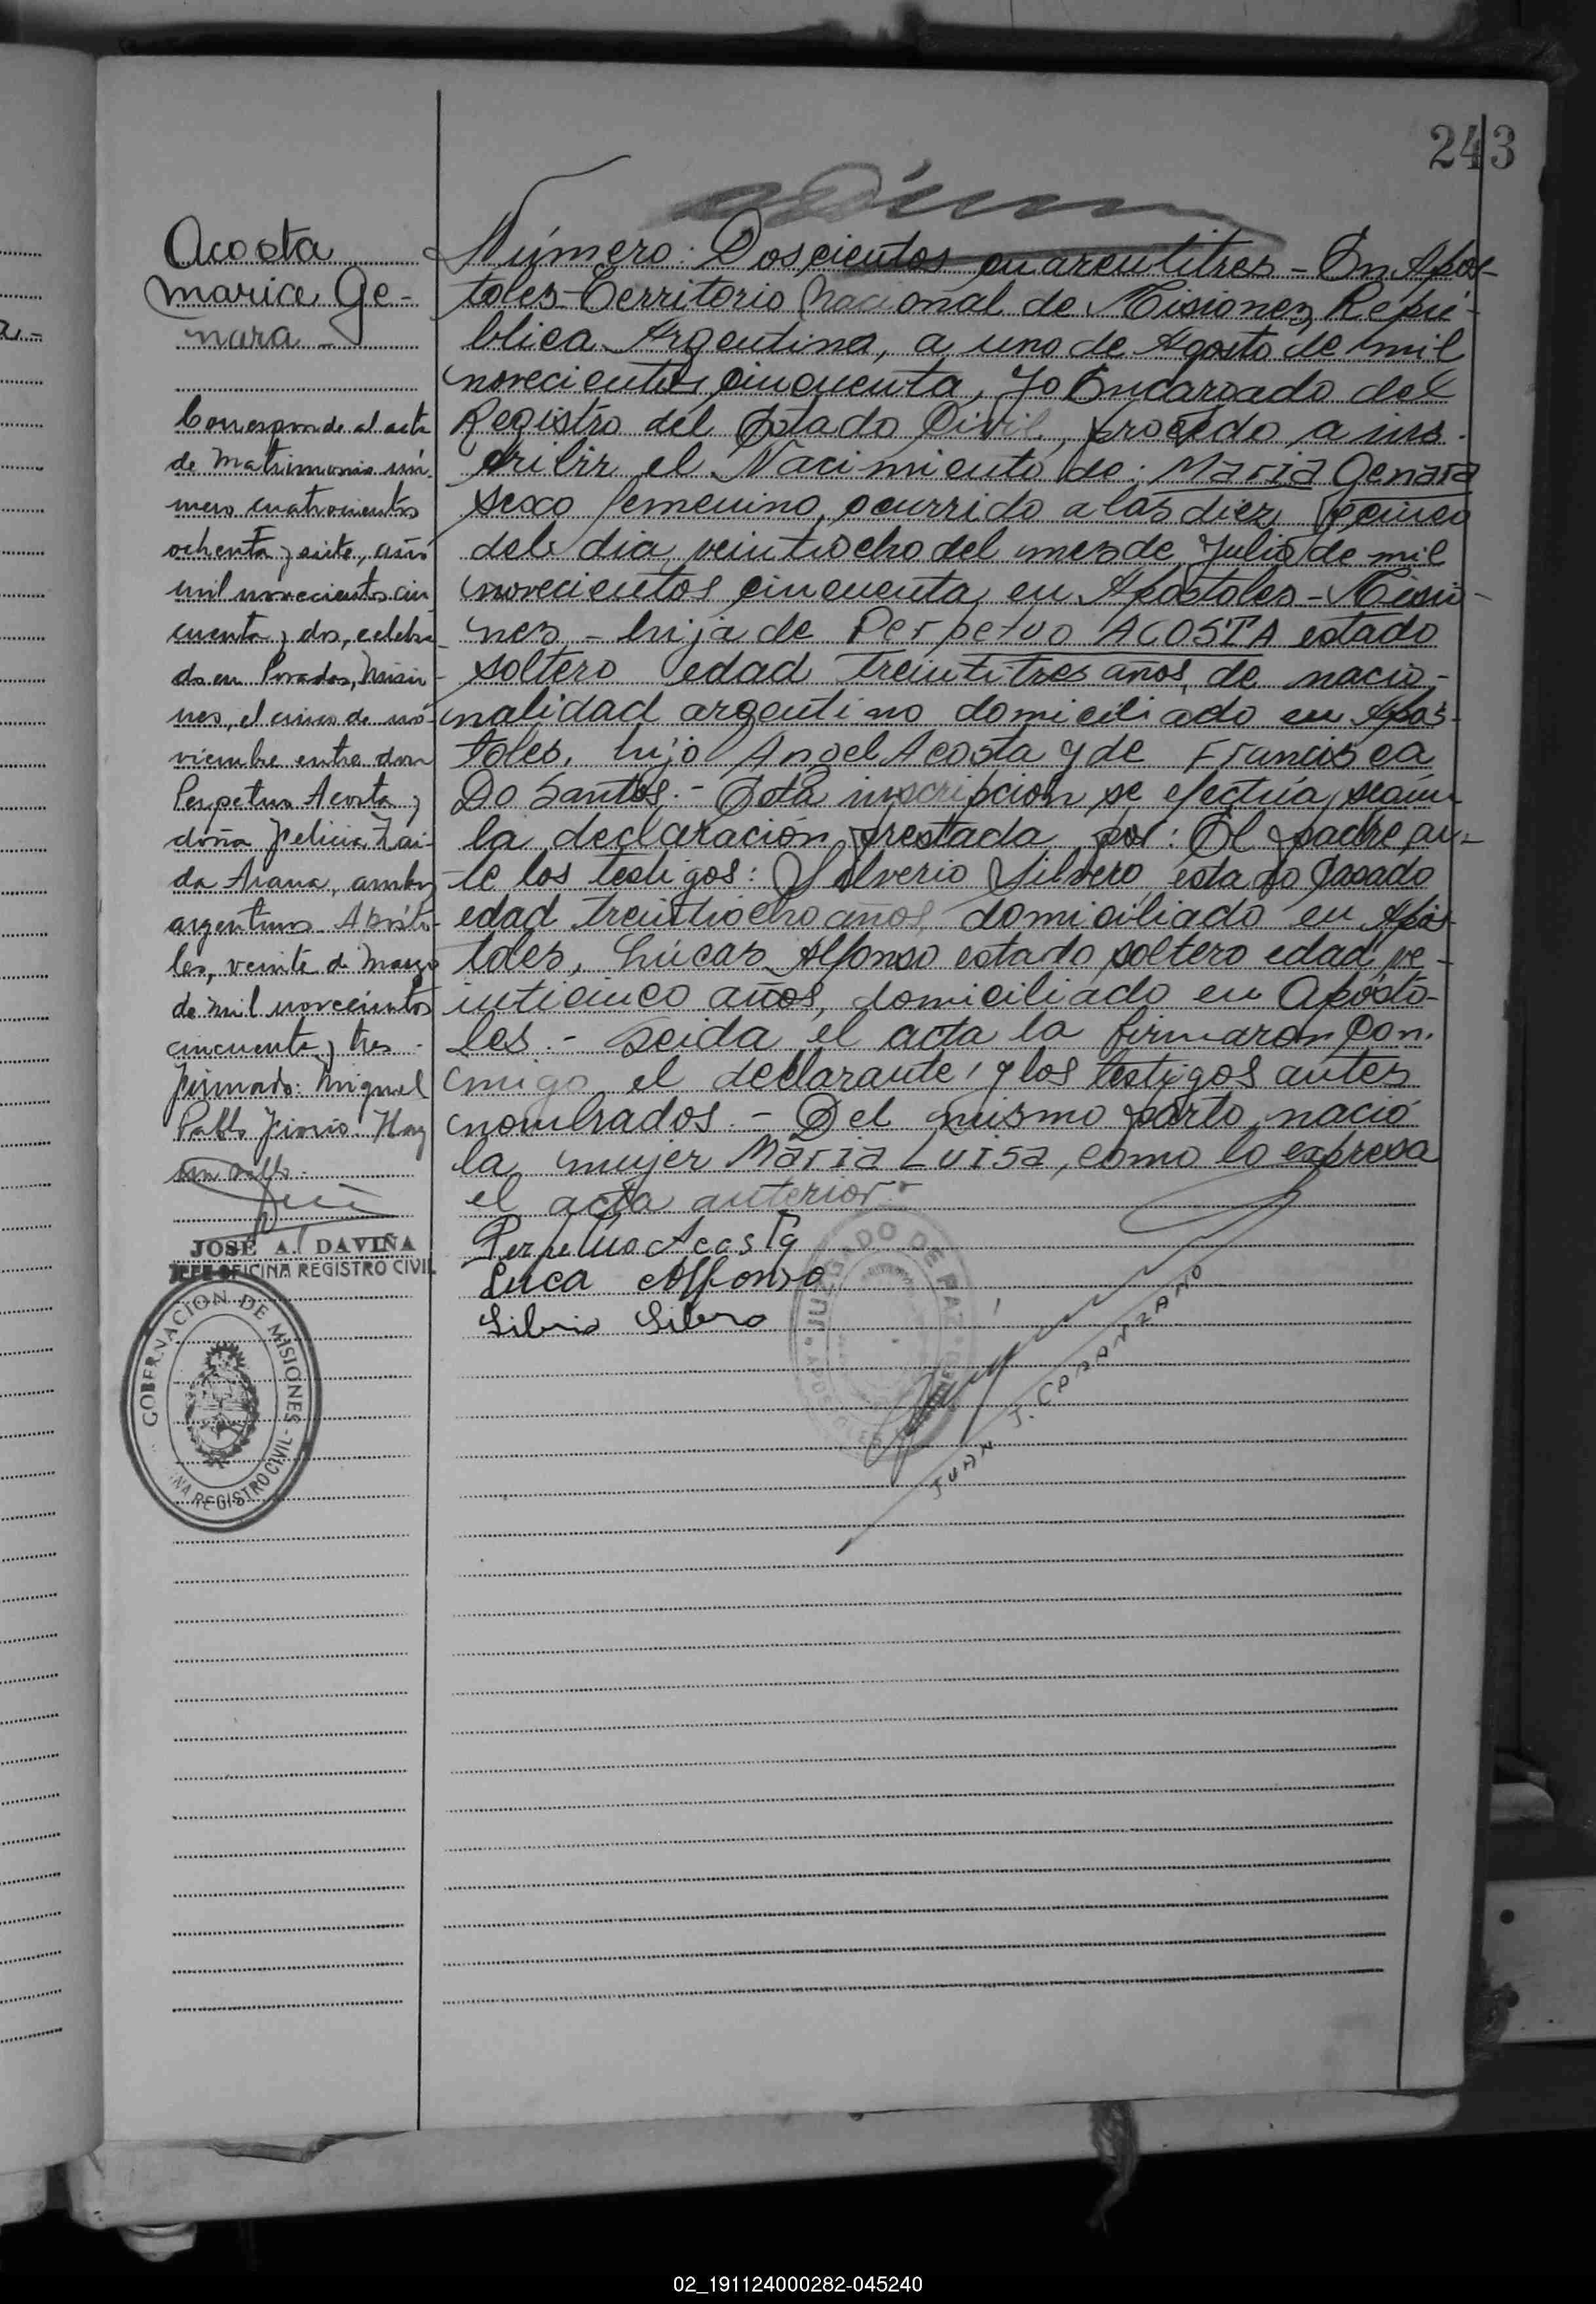 243
Acosta
Maria Ge-
nara -
Corresponde al acta
de Matrimonio nú-
mero cuatrocientos
ochenta y siete, año
mil novecientos cin
cuenta y dos, celebra
do en Posadas, Misio-
nes, el cinco de no-
viembre entre don
Perpetuo Acosta y
doña Felicia Zai-
da Arana, ambos
argentinos. Apósto-
les, veinte de Marzo
de mil novecientos
cincuenta y tres -
Firmado: Miguel
Pablo Hay
un sello.
JOSÉ A. DAVIÑA
JEFE OFICINA REGISTRO CIVIL
GOBERNACION DE MISIONES
NA REGISTRO CIVIL
Número: Doscientos cuarentitres - En Apos-
toles - Territorio Nacional de Misiones, Repú-
blica Argentina, a uno de Agosto de mil
novecientos cincuenta, Yo Encargado del
Registro del Estado Civil, procedo a ins-
cribir el Nacimiento de: Maria Genara
sexo femenino, ocurrido a las diez y cinco
del dia veintiocho del mes de Julio de mil
novecientos cincuenta en Apostoles - Misio-
nes - hija de Perpetuo ACOSTA estado
soltero edad treintitres años, de nacio-
nalidad argentino domiciliado en Apos-
toles, hijo Angel Acosta y de Francisca
Do Santos. - Esta inscripción se efectúa según
la declaración prestada por: El padre an-
te los testigos: Silverio Silvero estado casado
edad treintiocho años, domiciliado en Apos-
toles, Lúcas Alfonso estado soltero edad ve-
inticinco años, domiciliado en Aposto-
les. - Leida el acta la firmaron con-
migo el declarante y los testigos antes
nombrados. - Del mismo parto nació
la mujer Maria Luisa, como lo expresa
el acta anterior. -
Perpetuo Acosta
Luca Alfonso
Silverio Silvero
JUZGADO DE PAZ
JUAN J. CPAANZANO
02_191124000282-045240